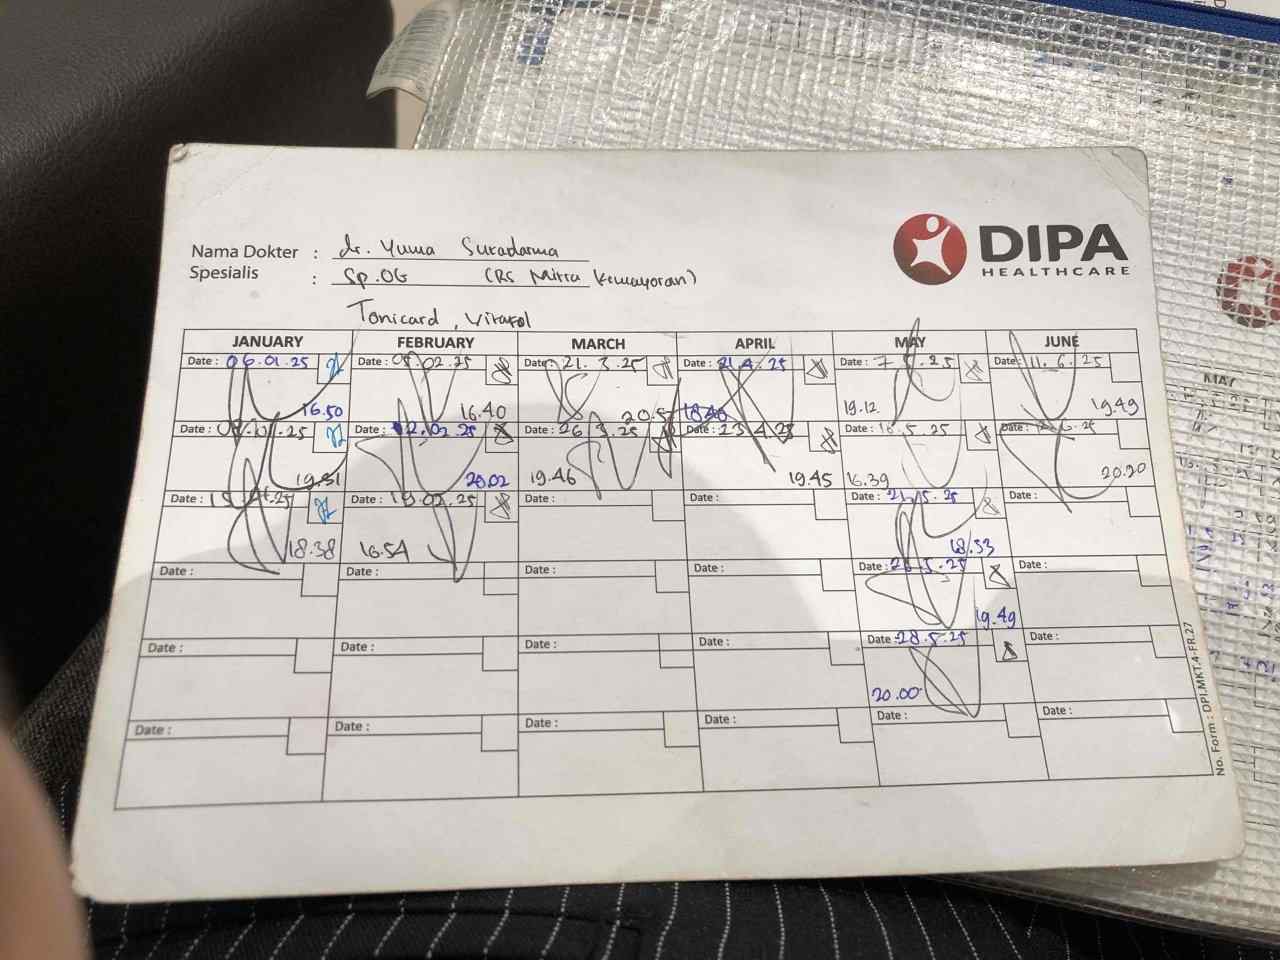 DIPA
HEALTHCARE
Nama Dokter : dr. Yuma Suradarma
Spesialis : Sp.OG (RS Mitra Kemayoran)
Tonicard, Vitafol
JANUARY FEBRUARY MARCH APRIL MAY JUNE
Date : 06.01.25 Date : 02.25 Date : 21.3.25 Date : 21.4.25 Date : 7.5.25 Date : 11.6.25
16.50 16.40 20.5 18.46 19.12 19.49
Date : 01.25 Date : 12.02.25 Date : 26.3.25 Date : 23.4.25 Date : 5.25 Date : 6.25
19.31 20.02 19.46 19.45 16.39 20.20
Date : 25 Date : 19.02.25 Date : Date : Date : 5.25 Date :
18.38 16.54 18.33
Date : Date : Date : Date : Date : 26.5.25 Date :
19.49
Date : Date : Date : Date : Date : 28.5.25 Date :
20.00
Date : Date : Date : Date : Date : Date :
No. Form : DPI.MKT.4-FR.27
MAY